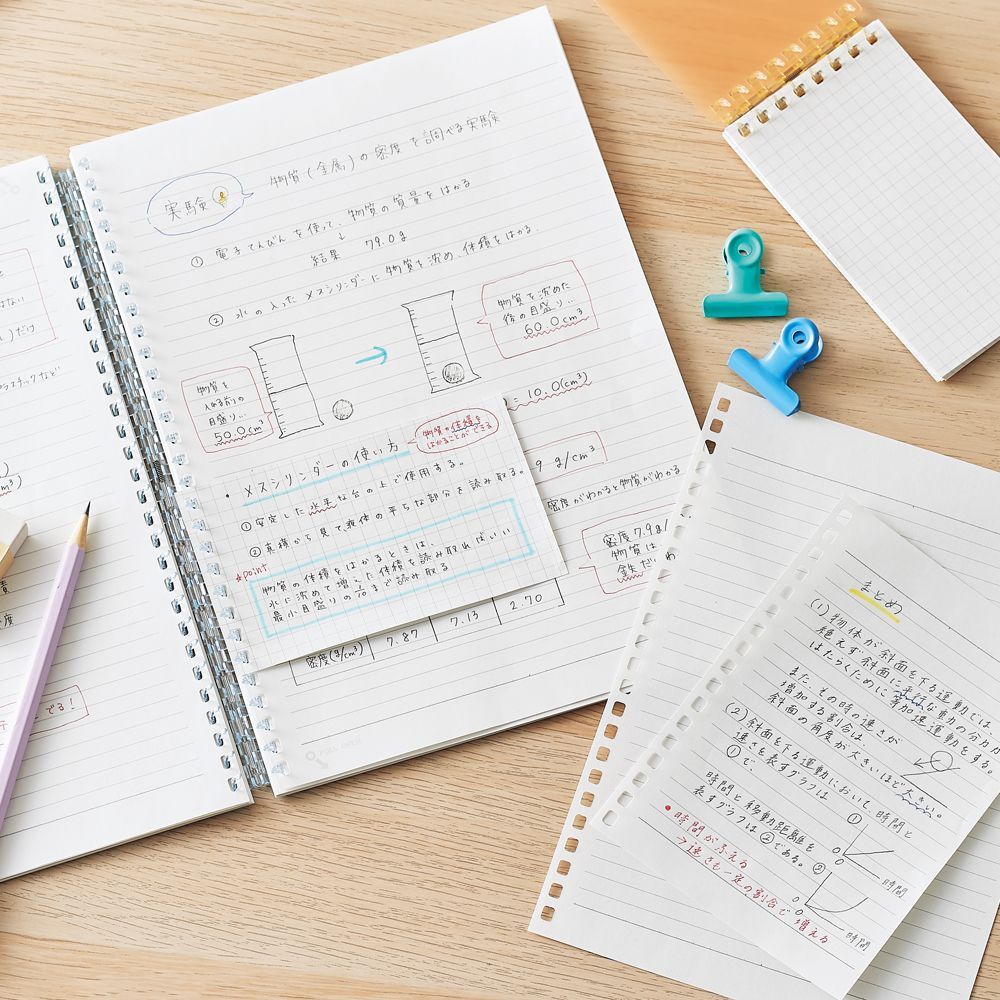 はない
)だけ
プラスチックなど
でる!
実験
物質(金属)の密度を調べる実験
① 電子てんびんを使って、物質の質量をはかる
↓
結果 79.0g
② 水の入ったメスシリンダーに物質を沈め、体積をはかる.
物質を
入れる前の
目盛り…
50.0cm³
物質を沈めた
後の目盛り…
60.0cm³
= 10.0(cm³)
9 g/cm³
密度がわかると物質がわかる
密度7.9g/
物質は
物質の体積を
はかることができる
・メスシリンダーの使い方
①安定した水平な台の上で使用する。
②真横から見て液体の平らな部分を読み取る。
*point
物質の体積をはかるときは、
水に沈めて増した体積を読み取ればいい
最小目盛りの1/10まで読み取る
密度(g/cm³) 7.87 7.13 2.70
まとめ
(1)物体が斜面を下る運動では
絶えず斜面に平行な重力の分力が
はたらくために等加速運動をする。
また、その時の速さが
増加する割合は、
斜面の角度が大きいほど大きい。
(2)斜面を下る運動において、時間と
速さを表すグラフは①
で、
時間と移動距離を
表すグラフは②である。
①
0
時間
②
0
時間
・時間がふえる
→速さも一定の割合で増える